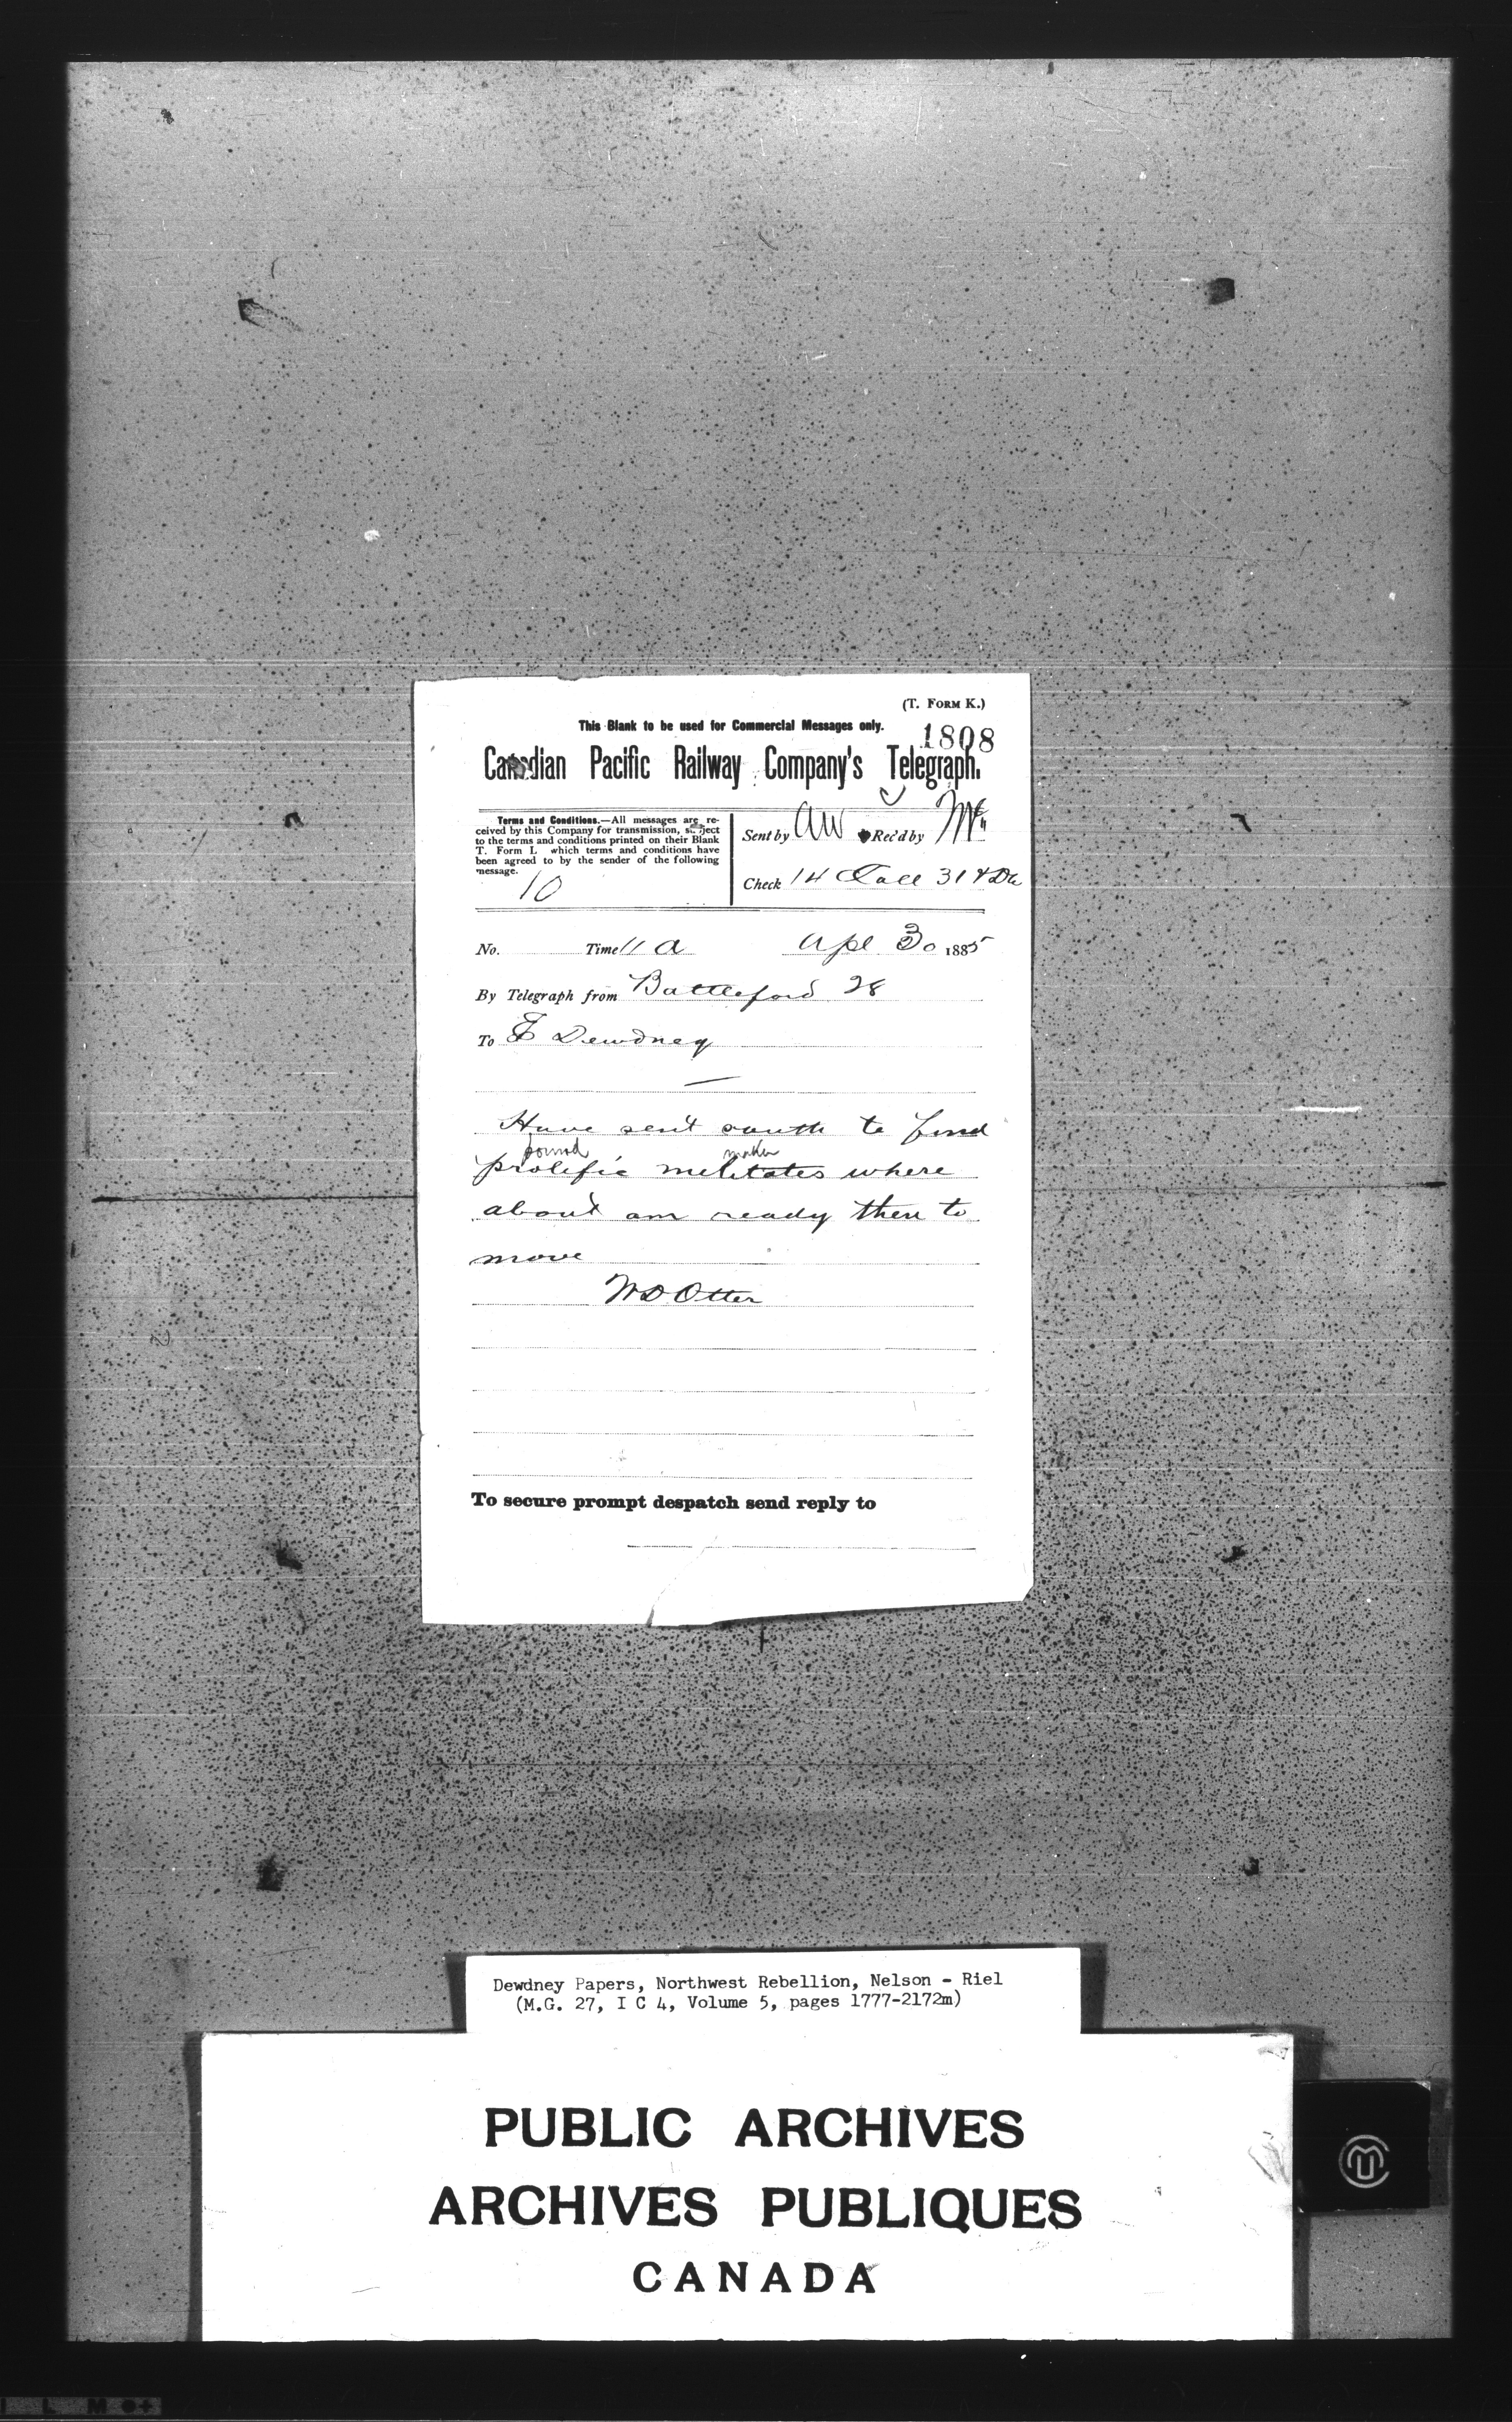 (T. FORM K.)
This Blank to be used for Commercial Messages only.
1808
Canadian Pacific Railway Company's Telegraph.
Terms and Conditions.—All messages are re-
ceived by this Company for transmission, subject
to the terms and conditions printed on their Blank
T. Form L which terms and conditions have
been agreed to by the sender of the following
message.
10
Sent by AW Rec'd by Mc
Check 14 Coll 31
No. Time 11 a Apl 30 1885
By Telegraph from Battleford 28
To E Dewdney
Have sent south to find
pound maker
prolific melitates where
about am ready then to
move
WD Otter
To secure prompt despatch send reply to
Dewdney Papers, Northwest Rebellion, Nelson - Riel
(M.G. 27, I C 4, Volume 5, pages 1777-2172m)
PUBLIC ARCHIVES
ARCHIVES PUBLIQUES
CANADA